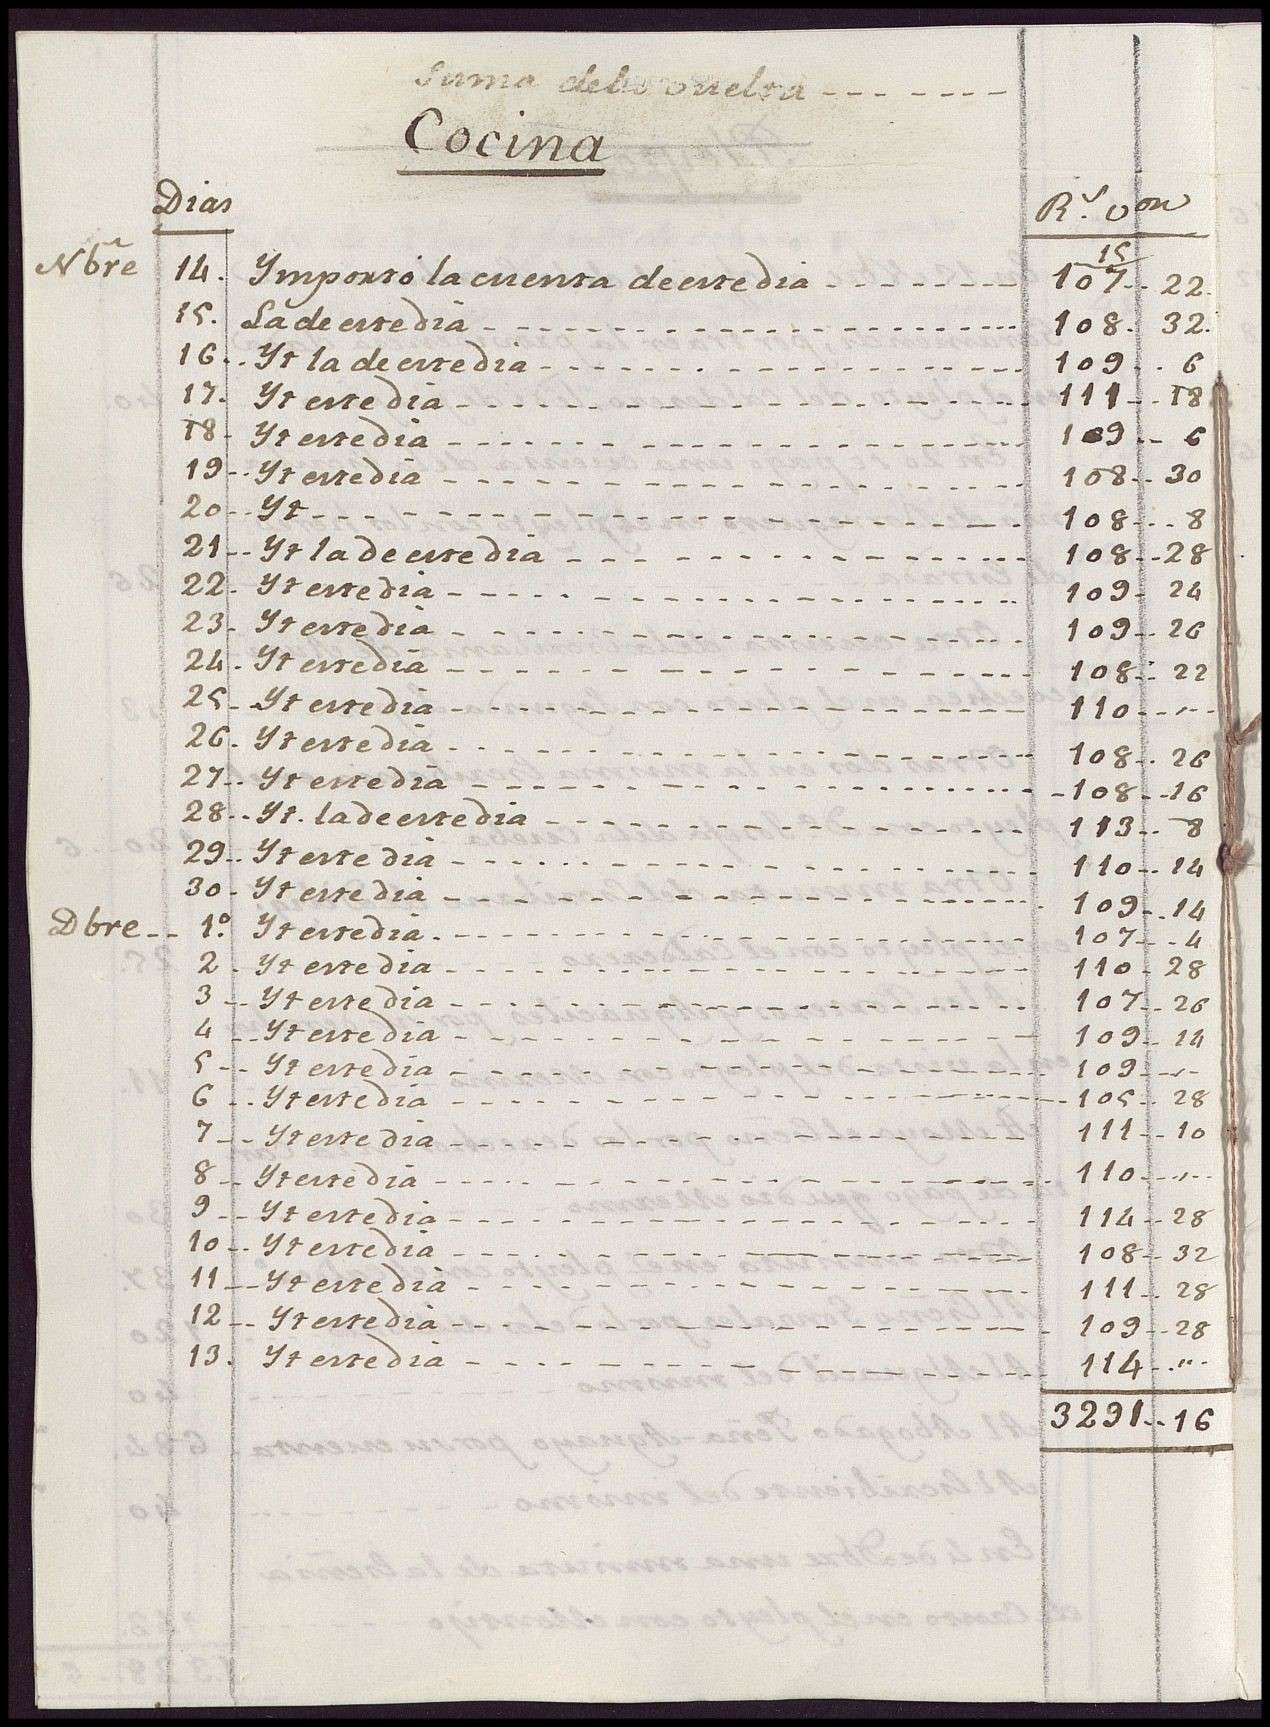 Suma dela vuelta
Cocina
Dias R.s von
15
Nbre 14. Ymportó la cuenta de este dia 107 22.
15. La de este dia 108. 32.
16 Yt la de este dia 109 6
17. Yt este dia 111 18
18 Yt este dia 109 6
19 Yt este dia 108 30
20 Yt 108 8
21 Yt la de este dia 108 28
22 Yt este dia 109 24
23 Yt este dia 109 26
24 Yt este dia 108 22
25 Yt este dia 110 "
26. Yt este dia 108 26
27 Yt este dia 108 16
28 Yt. la de este dia 113 8
29 Yt este dia 110 14
30 Yt este dia 109 14
Dbre 1.º Yt este dia 107 4
2 Yt este dia 110 28
3 Yt este dia 107 26
4 Yt este dia 109 14
5 Yt este dia 109 "
6 Yt este dia 105 28
7 Yt este dia 111 10
8 Yt este dia 110 "
9 Yt este dia 114 28
10 Yt este dia 108 32
11 Yt este dia 111 28
12 Yt este dia 109 28
13. Yt este dia 114 "
3291 16